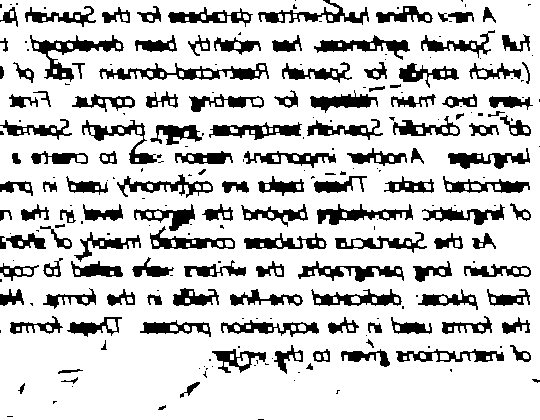 A new offline handwritten database for the Spanish
full Spanish sentences, has recently been developed:
(which stands for Spanish Restricted-domain Task of
were two main reasons for creating this corpus. First
do not contain Spanish sentences, even though Spanish
language. Another important reason was to create a
restricted tasks. These tasks are commonly used in
of linguistic knowledge beyond the lexicon level in the
As the Spartacus database consisted mainly of short
contain long paragraphs, the writers were asked to copy
fixed places: dedicated one-line fields in the forms.
the forms used in the acquisition process. These forms
of instructions given to the writer.